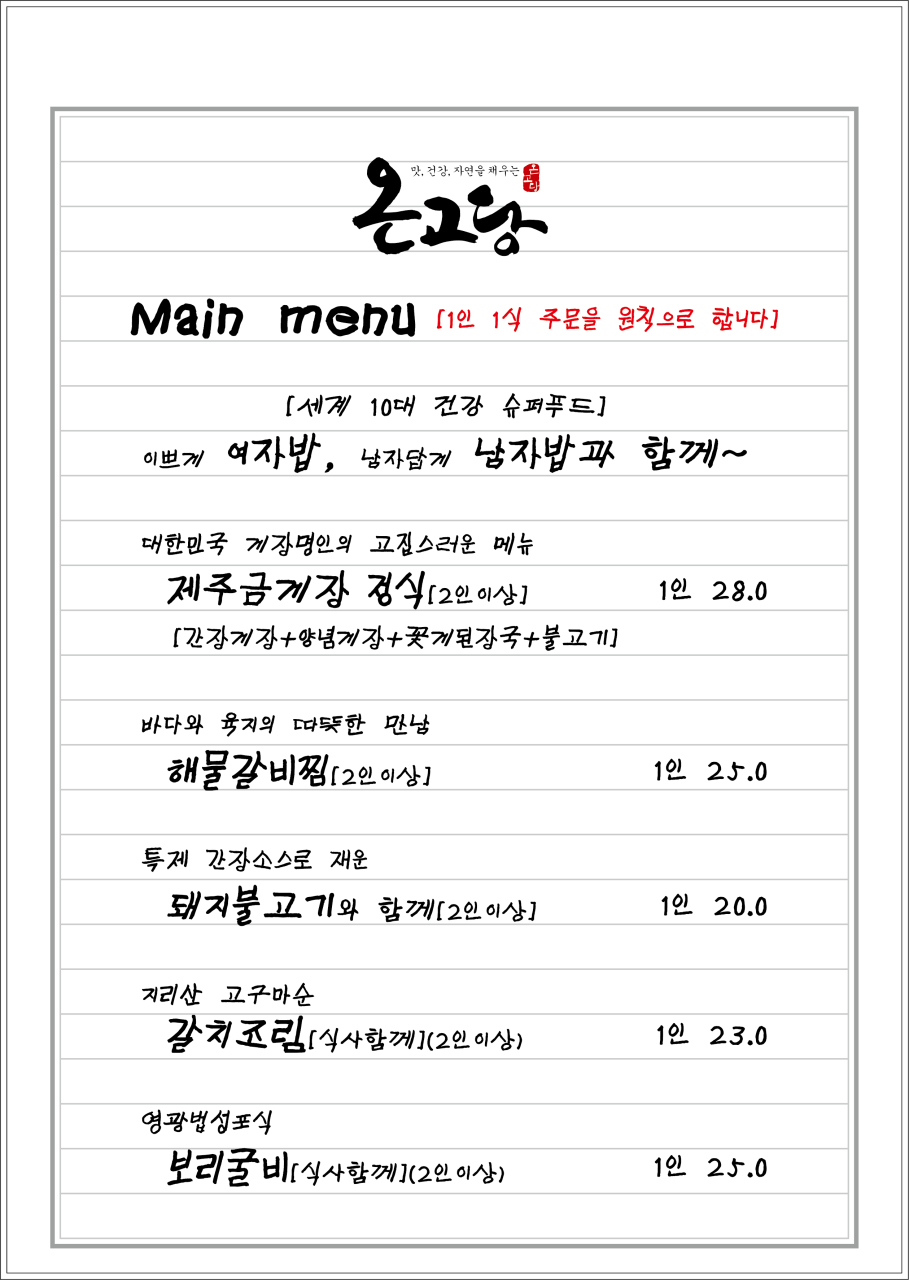 맛, 건강, 자연을 채우는
온고당
온고당
Main menu [1인 1식 주문을 원칙으로 합니다]
[세계 10대 건강 슈퍼푸드]
이쁘게 여자밥, 남자답게 남자밥과 함께~
대한민국 게장명인의 고집스러운 메뉴
제주금게장 정식[2인이상] 1인 28.0
[간장게장+양념게장+꽃게된장국+불고기]
바다와 육지의 따뜻한 만남
해물갈비찜[2인이상] 1인 25.0
특제 간장소스로 재운
돼지불고기와 함께[2인이상] 1인 20.0
지리산 고구마순
갈치조림[식사함께](2인이상) 1인 23.0
영광법성포식
보리굴비[식사함께](2인이상) 1인 25.0